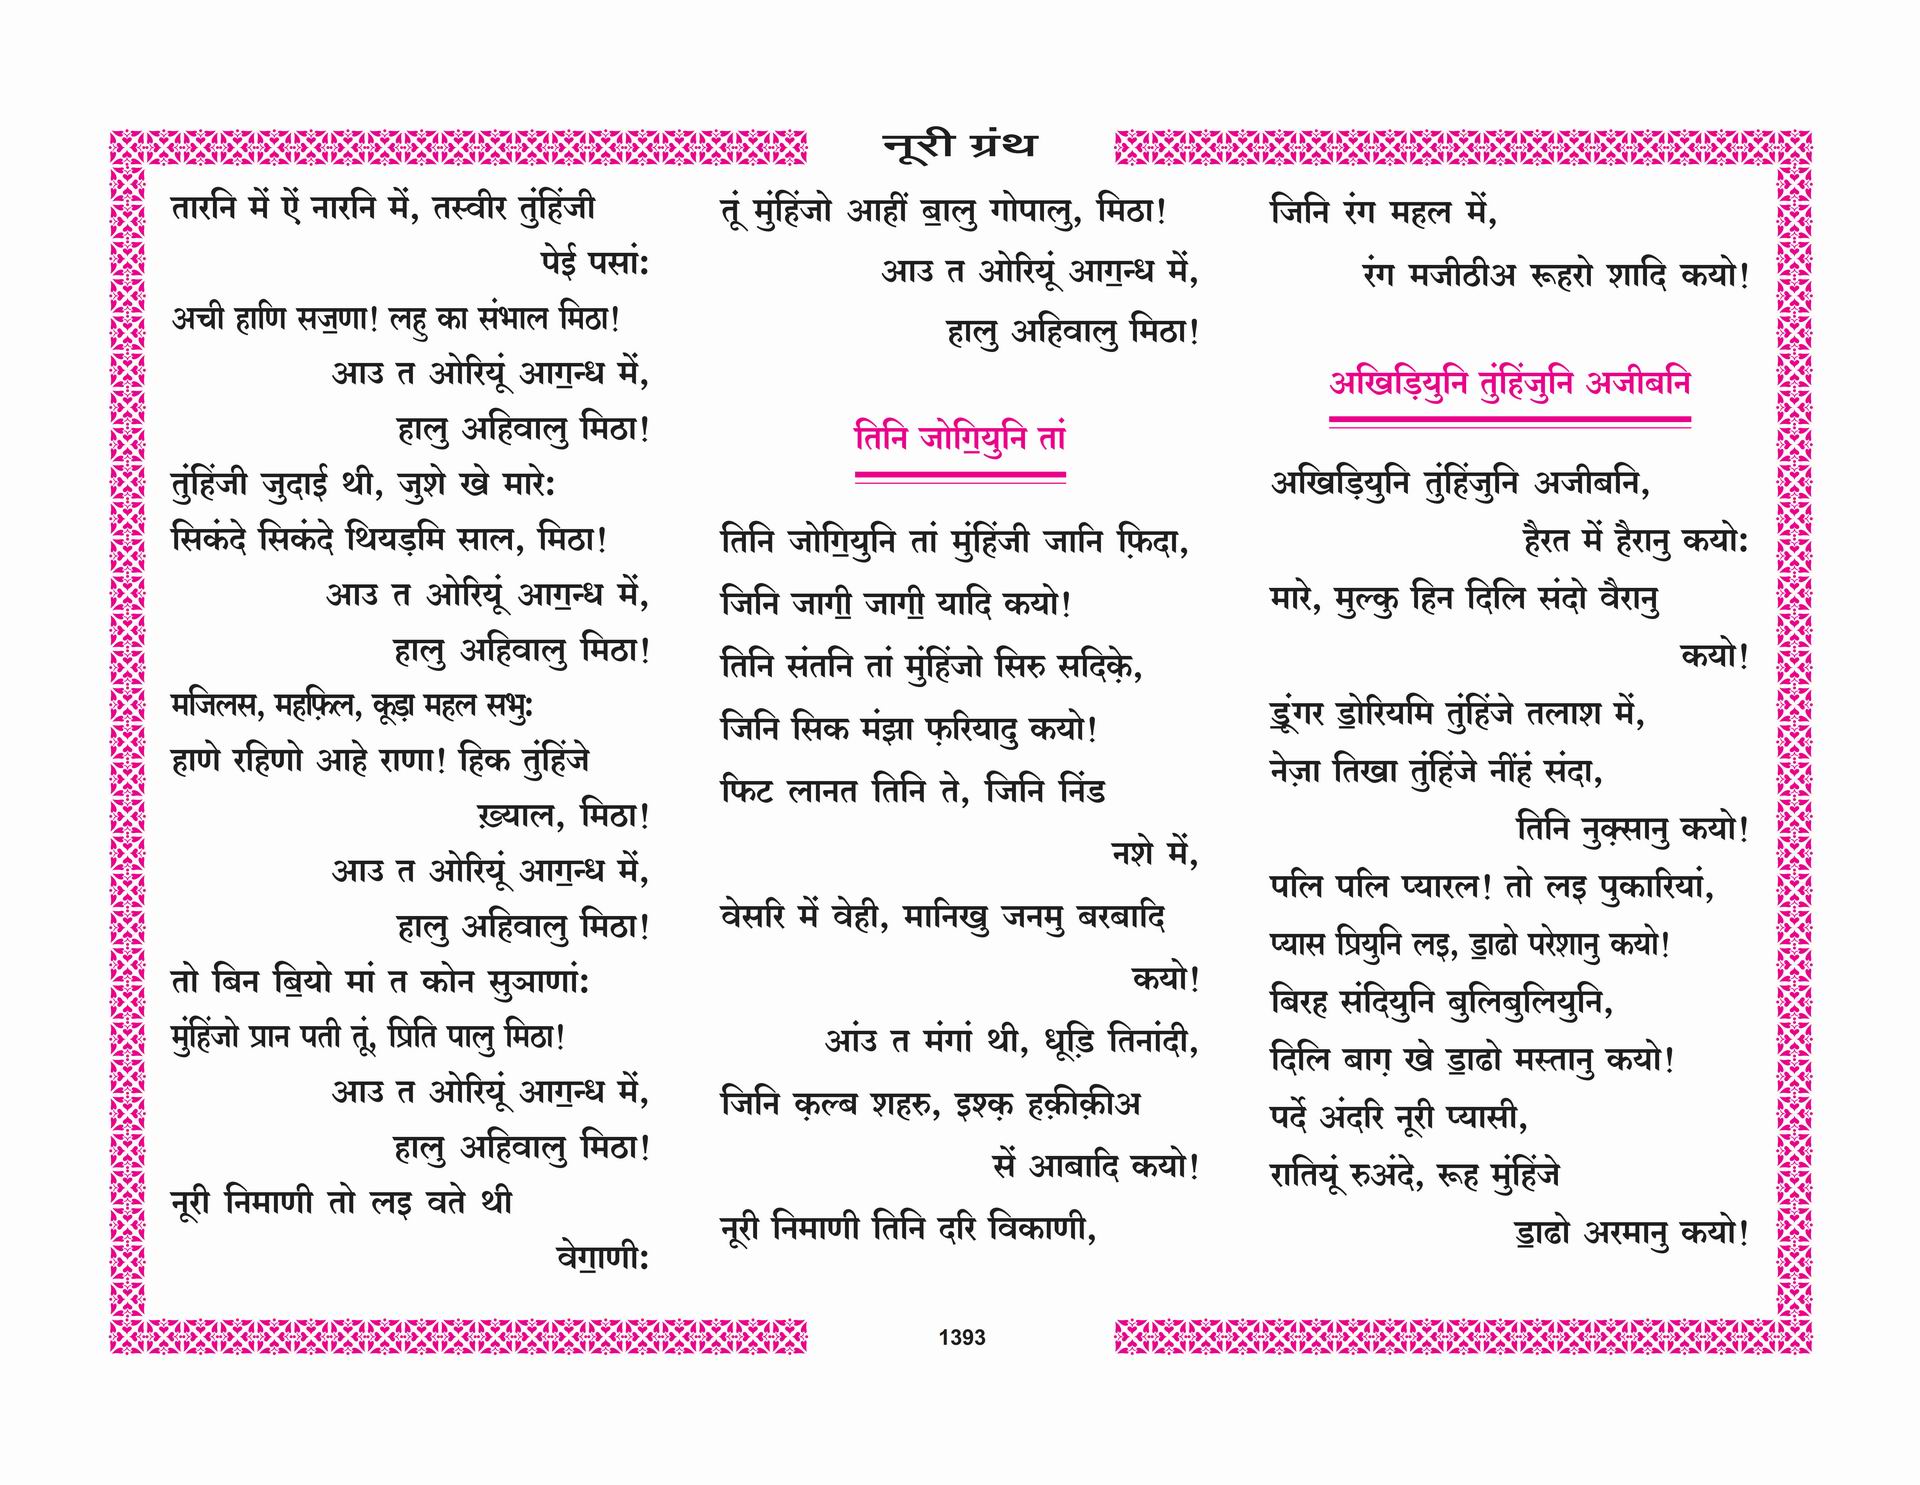 नूरी ग्रंथ
तारनि में ऐं नारनि में, तस्वीर तुंहिंजी
पेई पसां:
अची हाणि सज॒णा! लहु का संभाल मिठा!
आउ त ओरियूं आग॒न्ध में,
हालु अहिवालु मिठा!
तुंहिंजी जुदाई थी, जुशे खे मारे:
सिकंदे सिकंदे थियड़मि साल, मिठा!
आउ त ओरियूं आग॒न्ध में,
हालु अहिवालु मिठा!
मजिलस, महफ़िल, कूड़ा महल सभु:
हाणे रहिणो आहे राणा! हिक तुंहिंजे
ख़्याल, मिठा!
आउ त ओरियूं आग॒न्ध में,
हालु अहिवालु मिठा!
तो बिन ब॒ियो मां त कोन सुञाणां:
मुंहिंजो प्रान पती तूं, प्रिति पालु मिठा!
आउ त ओरियूं आग॒न्ध में,
हालु अहिवालु मिठा!
नूरी निमाणी तो लइ वते थी
वेग॒ाणी:
तूं मुंहिंजो आहीं ब॒ालु गोपालु, मिठा!
आउ त ओरियूं आग॒न्ध में,
हालु अहिवालु मिठा!
तिनि जोग॒ियुनि तां
तिनि जोग॒ियुनि तां मुंहिंजी जानि फ़िदा,
जिनि जाग॒ी जाग॒ी यादि कयो!
तिनि संतनि तां मुंहिंजो सिरु सदिक़े,
जिनि सिक मंझा फ़रियादु कयो!
फिट लानत तिनि ते, जिनि निंड
नशे में,
वेसरि में वेही, मानिखु जनमु बरबादि
कयो!
आंउ त मंगां थी, धूड़ि तिनांदी,
जिनि क़ल्ब शहरु, इश्क़ हक़ीक़ीअ
सें आबादि कयो!
नूरी निमाणी तिनि दरि विकाणी,
जिनि रंग महल में,
रंग मजीठीअ रूहरो शादि कयो!
अखिड़ियुनि तुंहिंजुनि अजीबनि
अखिड़ियुनि तुंहिंजुनि अजीबनि,
हैरत में हैरानु कयो:
मारे, मुल्कु हिन दिलि संदो वैरानु
कयो!
ड॒ूंगर ड॒ोरियमि तुंहिंजे तलाश में,
नेज़ा तिखा तुंहिंजे नींहं संदा,
तिनि नुक़्सानु कयो!
पलि पलि प्यारल! तो लइ पुकारियां,
प्यास प्रियुनि लइ, ड॒ाढो परेशानु कयो!
बिरह संदियुनि बुलिबुलियुनि,
दिलि बाग़ खे ड॒ाढो मस्तानु कयो!
पर्दे अंदरि नूरी प्यासी,
रातियूं रुअंदे, रूह मुंहिंजे
ड॒ाढो अरमानु कयो!
1393